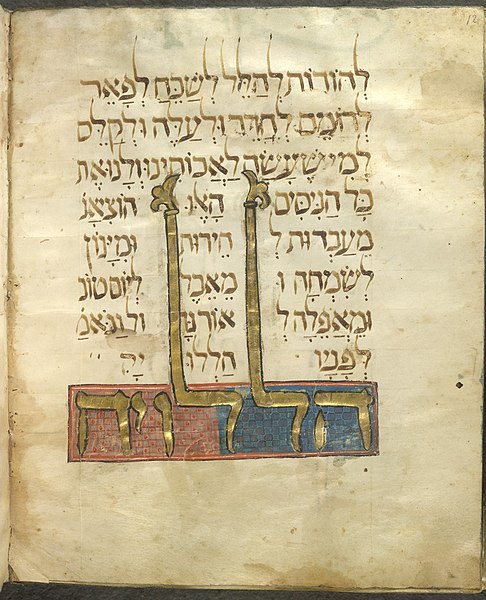 12
להודות להלל לשבח לפאר
לרומם להדר ולעלה ולקלס
למי שעשה לאבותינו ולנו את
כל הניסים האו הוצאנ
מעבדות ל חירות ומיגון
לשמחה ו מאבל ליום טוב
ומאפלה ל אור גד ול ונאמ
לפניו הללו יה
הללויה